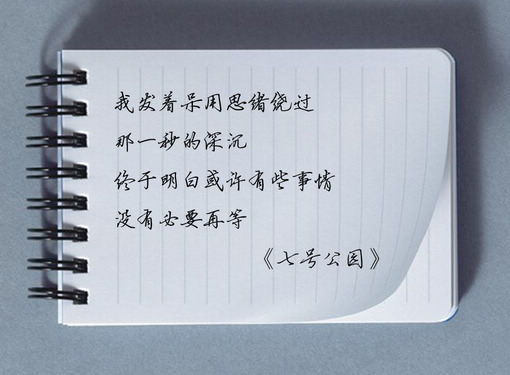 我发着呆用思绪绕过
那一秒的深沉
终于明白或许有些事情
没有必要再等
《七号公园》